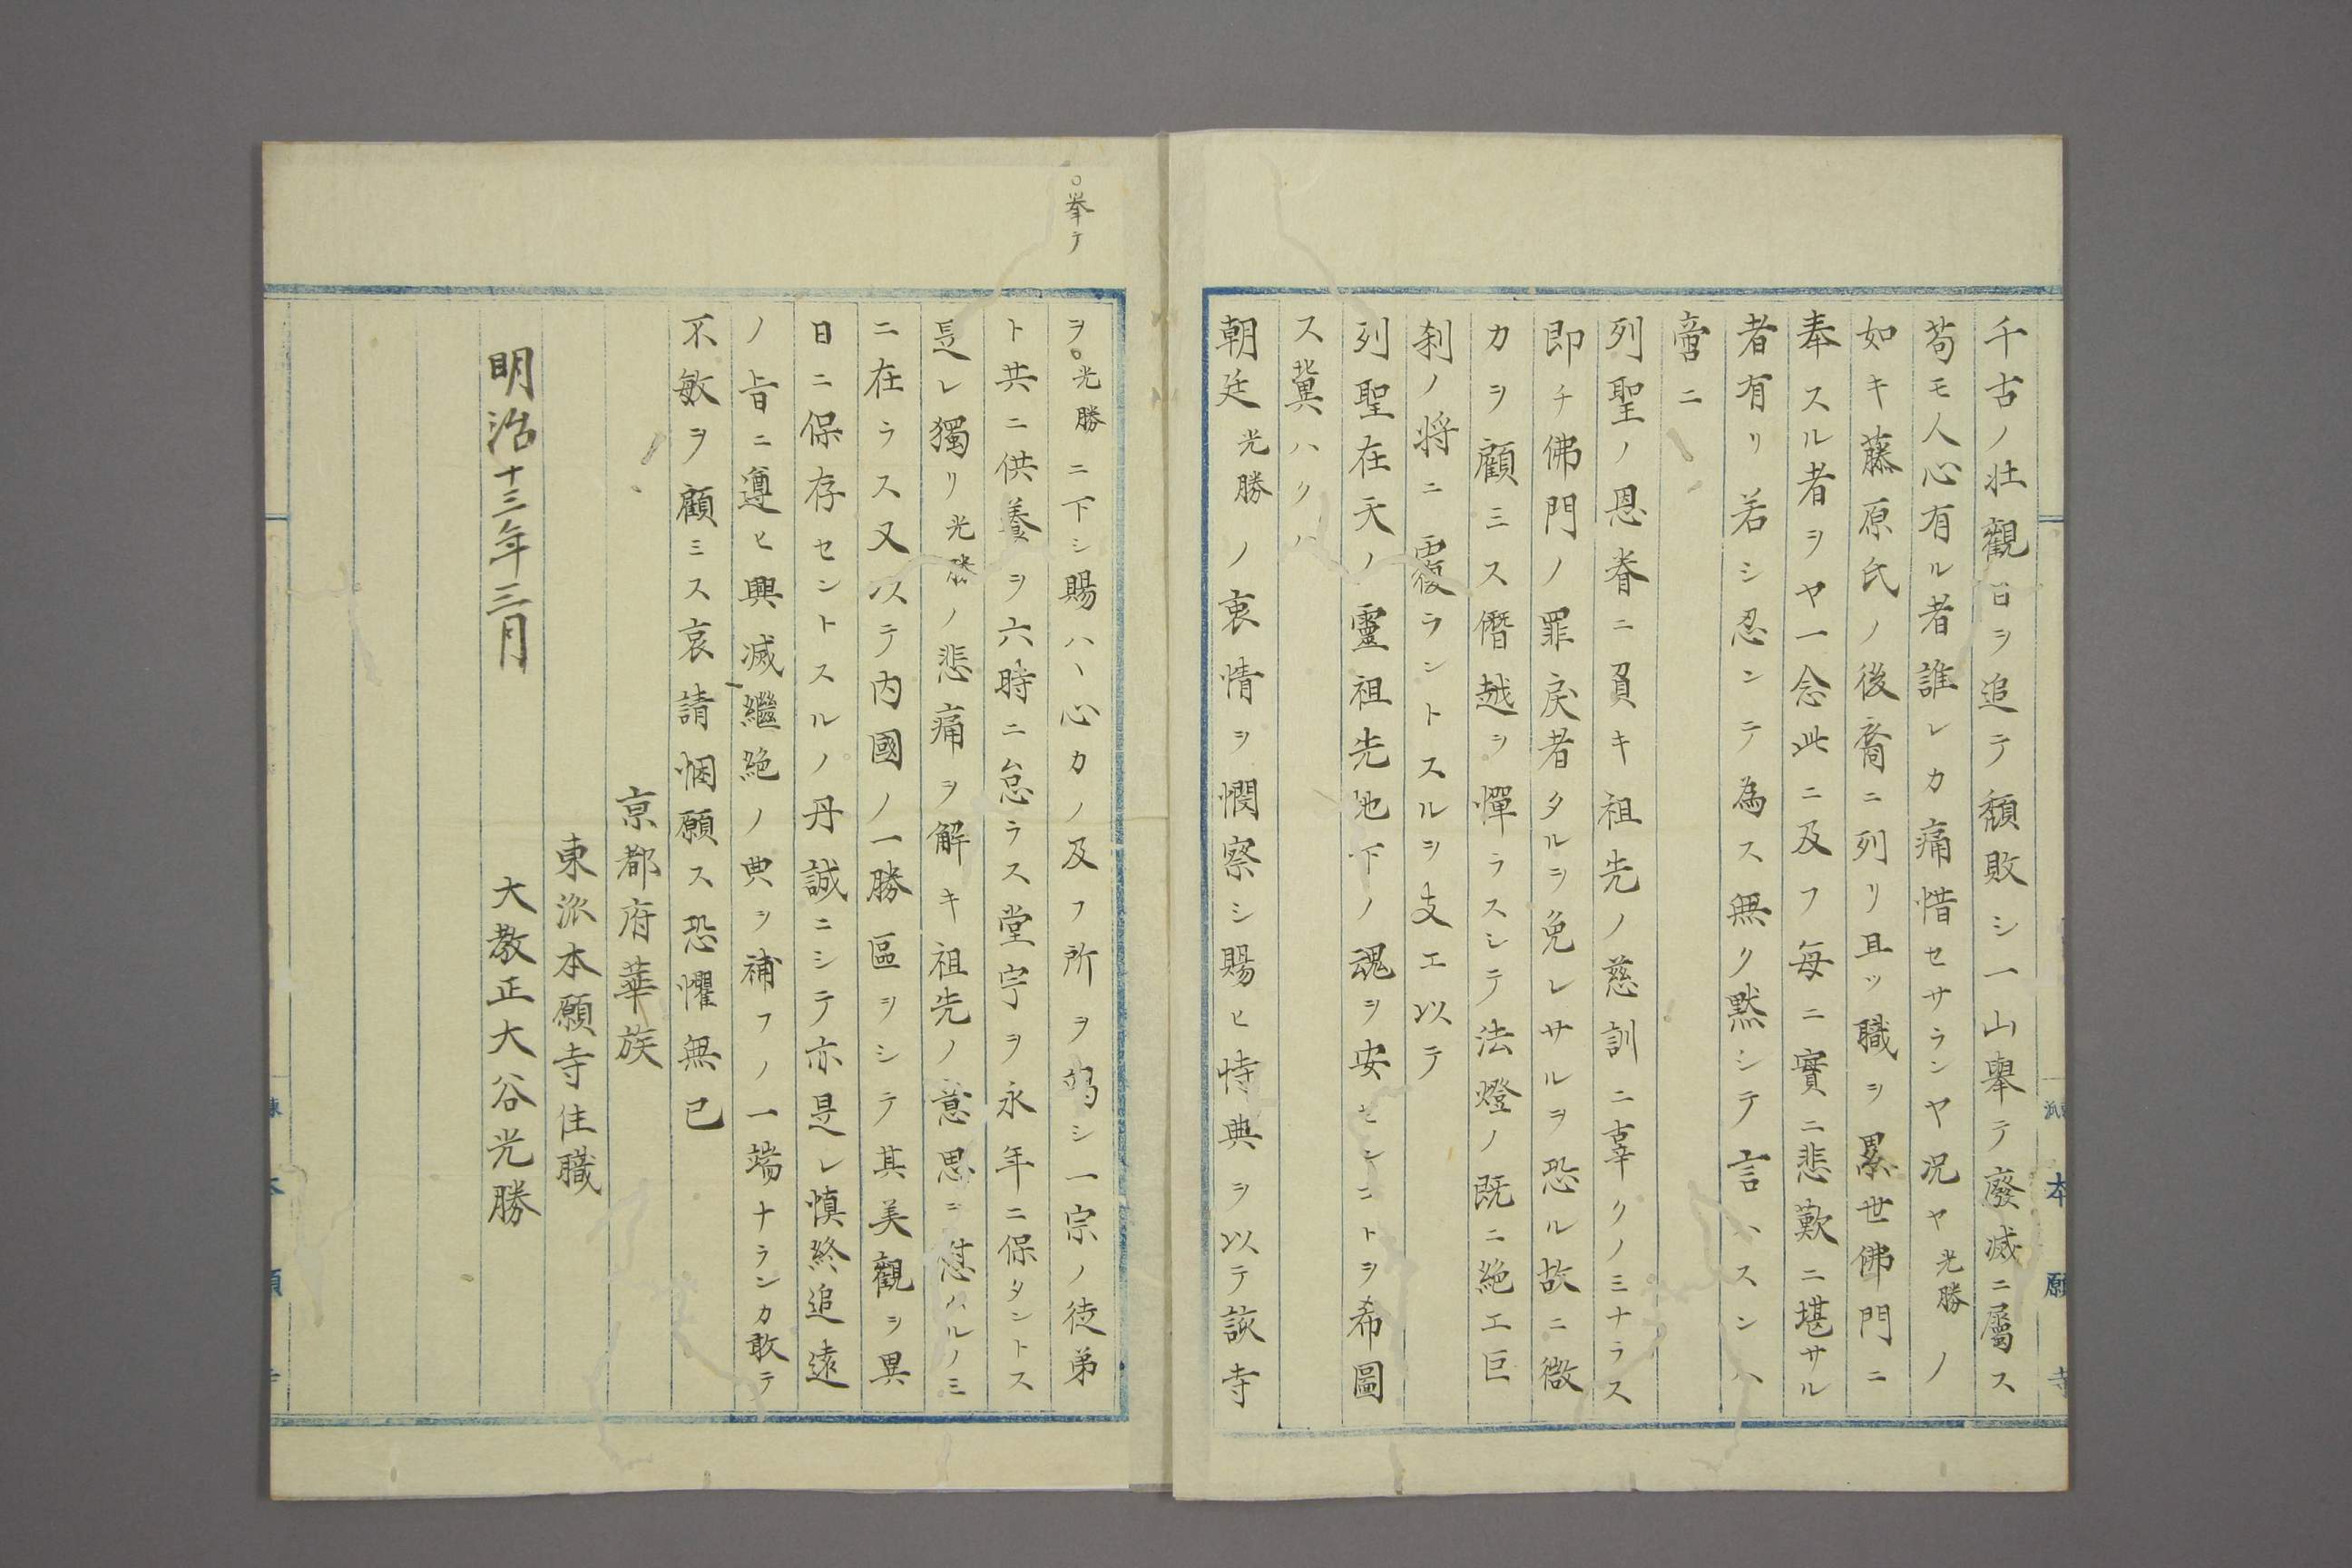 千古ノ壮觀日ヲ追テ頽敗シ一山舉テ廢滅ニ屬ス
苟モ人心有ル者誰レカ痛惜セサランヤ况ヤ光勝ノ
如キ藤原氏ノ後裔ニ列リ且ッ職ヲ累世佛門ニ
奉スル者ヲヤ一念此ニ及フ毎ニ實ニ悲歎ニ堪サル
者有リ若シ忍ンテ為ス無ク黙シテ言ハスンハ
啻ニ
列聖ノ恩眷ニ負キ祖先ノ慈訓ニ辜クノミナラス
即チ佛門ノ罪戻者タルヲ免レサルヲ恐ル故ニ微
力ヲ顧ミス僭越ヲ憚ラスシテ法燈ノ既ニ絶エ巨
刹ノ将ニ覆ラントスルヲ支エ以テ
列聖在天ノ靈祖先地下ノ魂ヲ安センコトヲ希圖
ス冀ハクハ
朝廷光勝ノ衷情ヲ憫察シ賜ヒ恃典ヲ以テ該寺
○挙テ
ヲ○光勝ニ下シ賜ハヽ心力ノ及フ所ヲ竭シ一宗ノ徒弟
ト共ニ供養ヲ六時ニ怠ラス堂宇ヲ永年ニ保タントス
是レ獨リ光勝ノ悲痛ヲ解キ祖先ノ意思ニ慰ハルノミ
ニ在ラス又以テ内國ノ一勝區ヲシテ其美觀ヲ異
日ニ保存セントスルノ丹誠ニシテ亦是レ慎終追遠
ノ旨ニ遵ヒ興滅繼絶ノ典ヲ補フノ一端ナランカ敢テ
不敏ヲ顧ミス哀請悃願ス恐懼無已
京都府華族
東派本願寺住職
明治十三年三月 大教正大谷光勝
本願寺